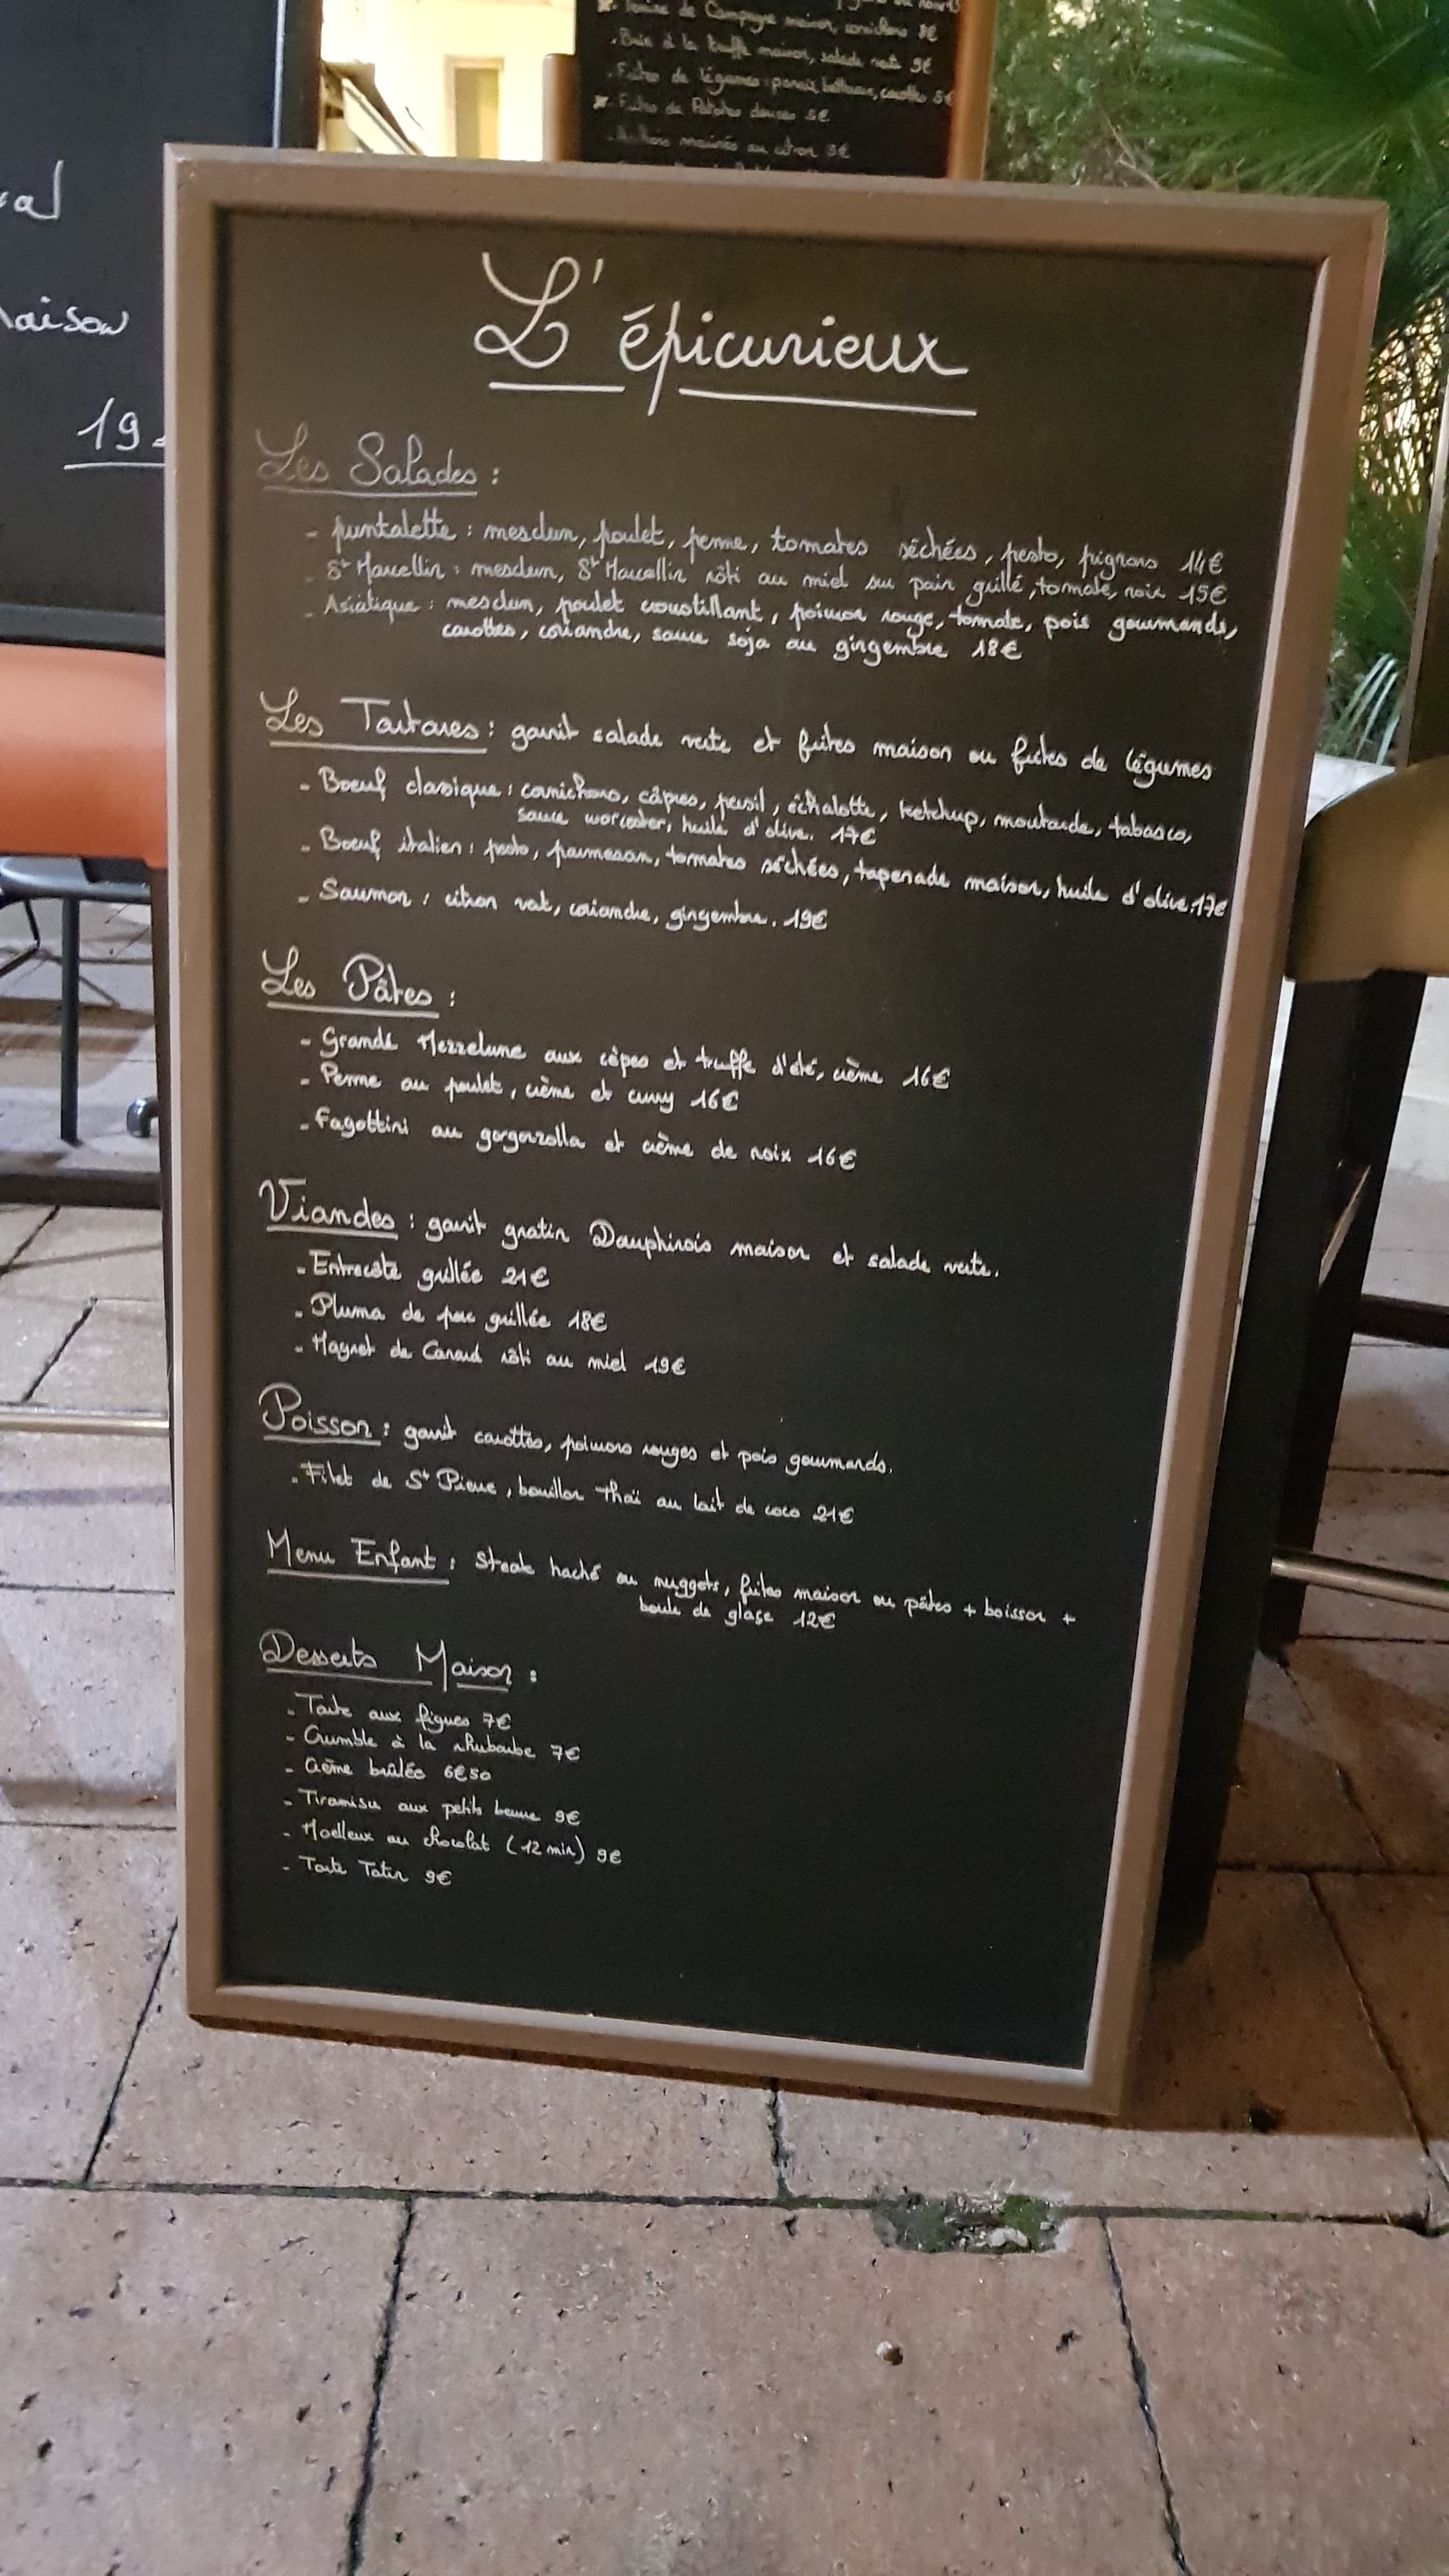 Terrine de Campagne maison, cornichons 9€
- Brie à la truffe maison, salade verte 9€
- Frites de légumes : panais, betterave, carotte 5€
- Frites de Patates douces 5€
marinés au citron 5€
al
aison
19
L'épicurieux
Les Salades :
- puntalette : mesclun, poulet, penne, tomates séchées, pesto, pignons 14€
- St Marcellin : mesclun, St Marcellin rôti au miel sur pain grillé, tomate, noix 15€
- Asiatique : mesclun, poulet croustillant, poivron rouge, tomate, pois gourmands,
carottes, coriandre, sauce soja au gingembre 18€
Les Tartares : garnit salade verte et frites maison ou frites de légumes
- Boeuf classique : cornichons, câpres, persil, échalotte, ketchup, moutarde, tabasco,
sauce worcester, huile d'olive. 17€
- Boeuf italien : pesto, parmesan, tomates séchées, tapenade maison, huile d'olive. 17€
- Saumon : citron vert, coriandre, gingembre. 19€
Les Pâtes :
- Grande Mezzelune aux cèpes et truffe d'été, crème 16€
- Penne au poulet, crème et curry 16€
- Fagottini au gorgonzolla et crème de noix 16€
Viandes : garnit gratin Dauphinois maison et salade verte.
- Entrecôte grillée 21€
- Pluma de porc grillée 18€
- Magret de Canard rôti au miel 19€
Poisson : garnit carottes, poivrons rouges et pois gourmands.
- Filet de St Pierre, bouillon Thaï au lait de coco 21€
Menu Enfant : Steak haché ou nuggets, frites maison ou pâtes + boisson +
boule de glace 12€
Desserts Maison :
- Tarte aux figues 7€
- Crumble à la rhubarbe 7€
- Crème brûlée 6€50
- Tiramisu aux petits beurre 9€
- Moelleux au chocolat (12 min) 9€
- Tarte Tatin 9€